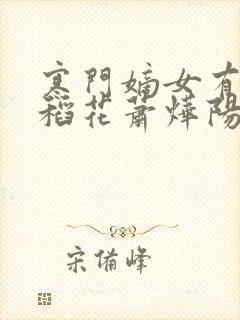 寒門嫡女有
稻花蕭燁陽
宋備峰